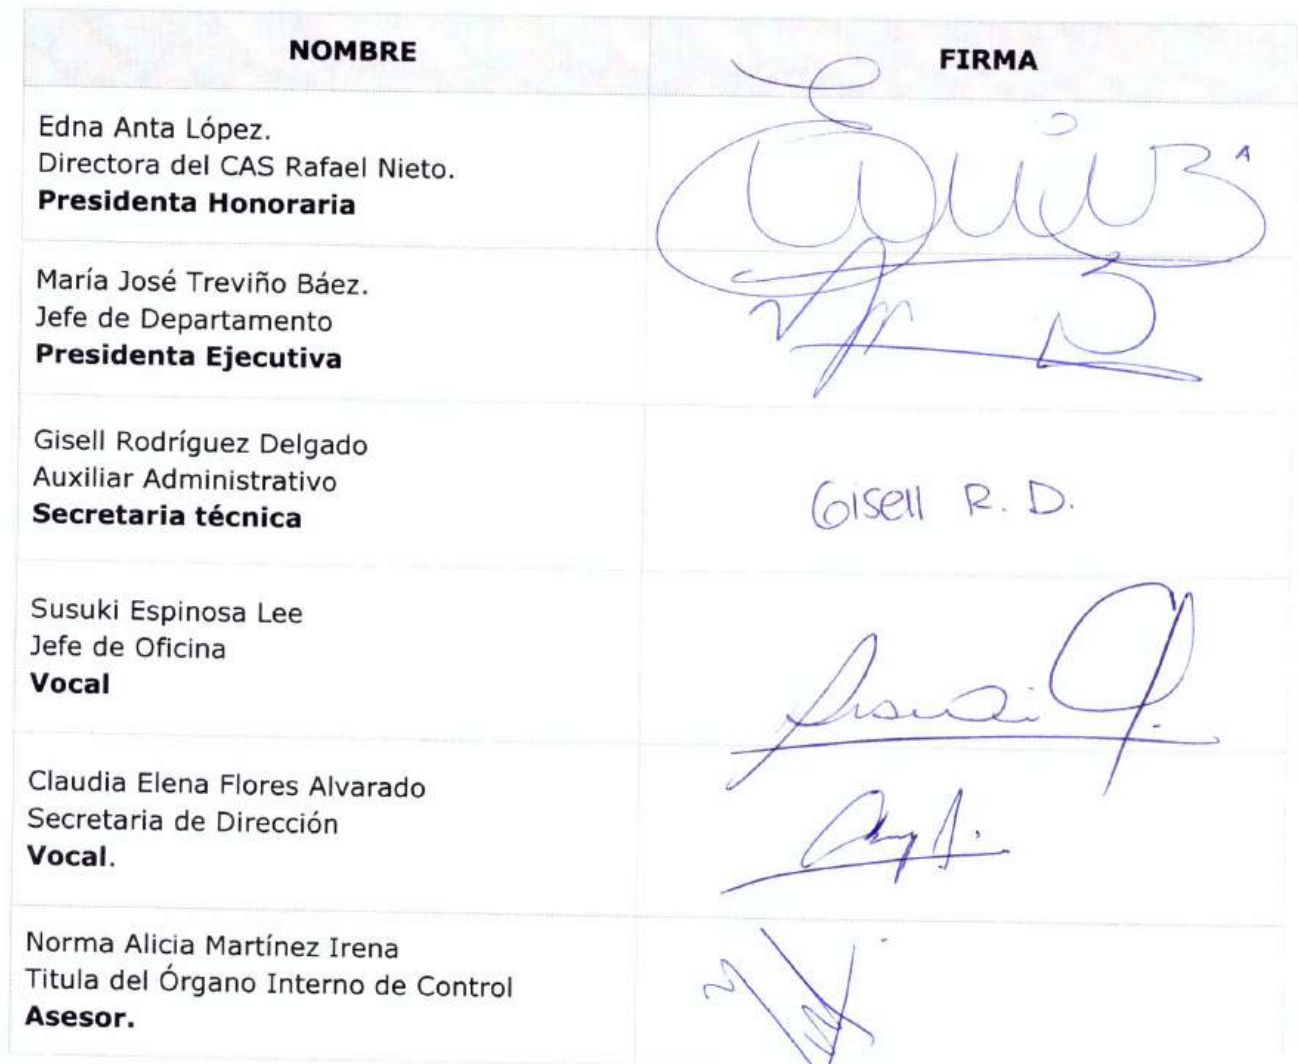 NOMBRE
FIRMA
Edna Anta López.
Directora del CAS Rafael Nieto.
Presidenta Honoraria
María José Treviño Báez.
Jefe de Departamento
Presidenta Ejecutiva
Gisell Rodríguez Delgado
Auxiliar Administrativo
Secretaria técnica
Gisell R. D.
Susuki Espinosa Lee
Jefe de Oficina
Vocal
Claudia Elena Flores Alvarado
Secretaria de Dirección
Vocal.
Norma Alicia Martínez Irena
Titula del Órgano Interno de Control
Asesor.